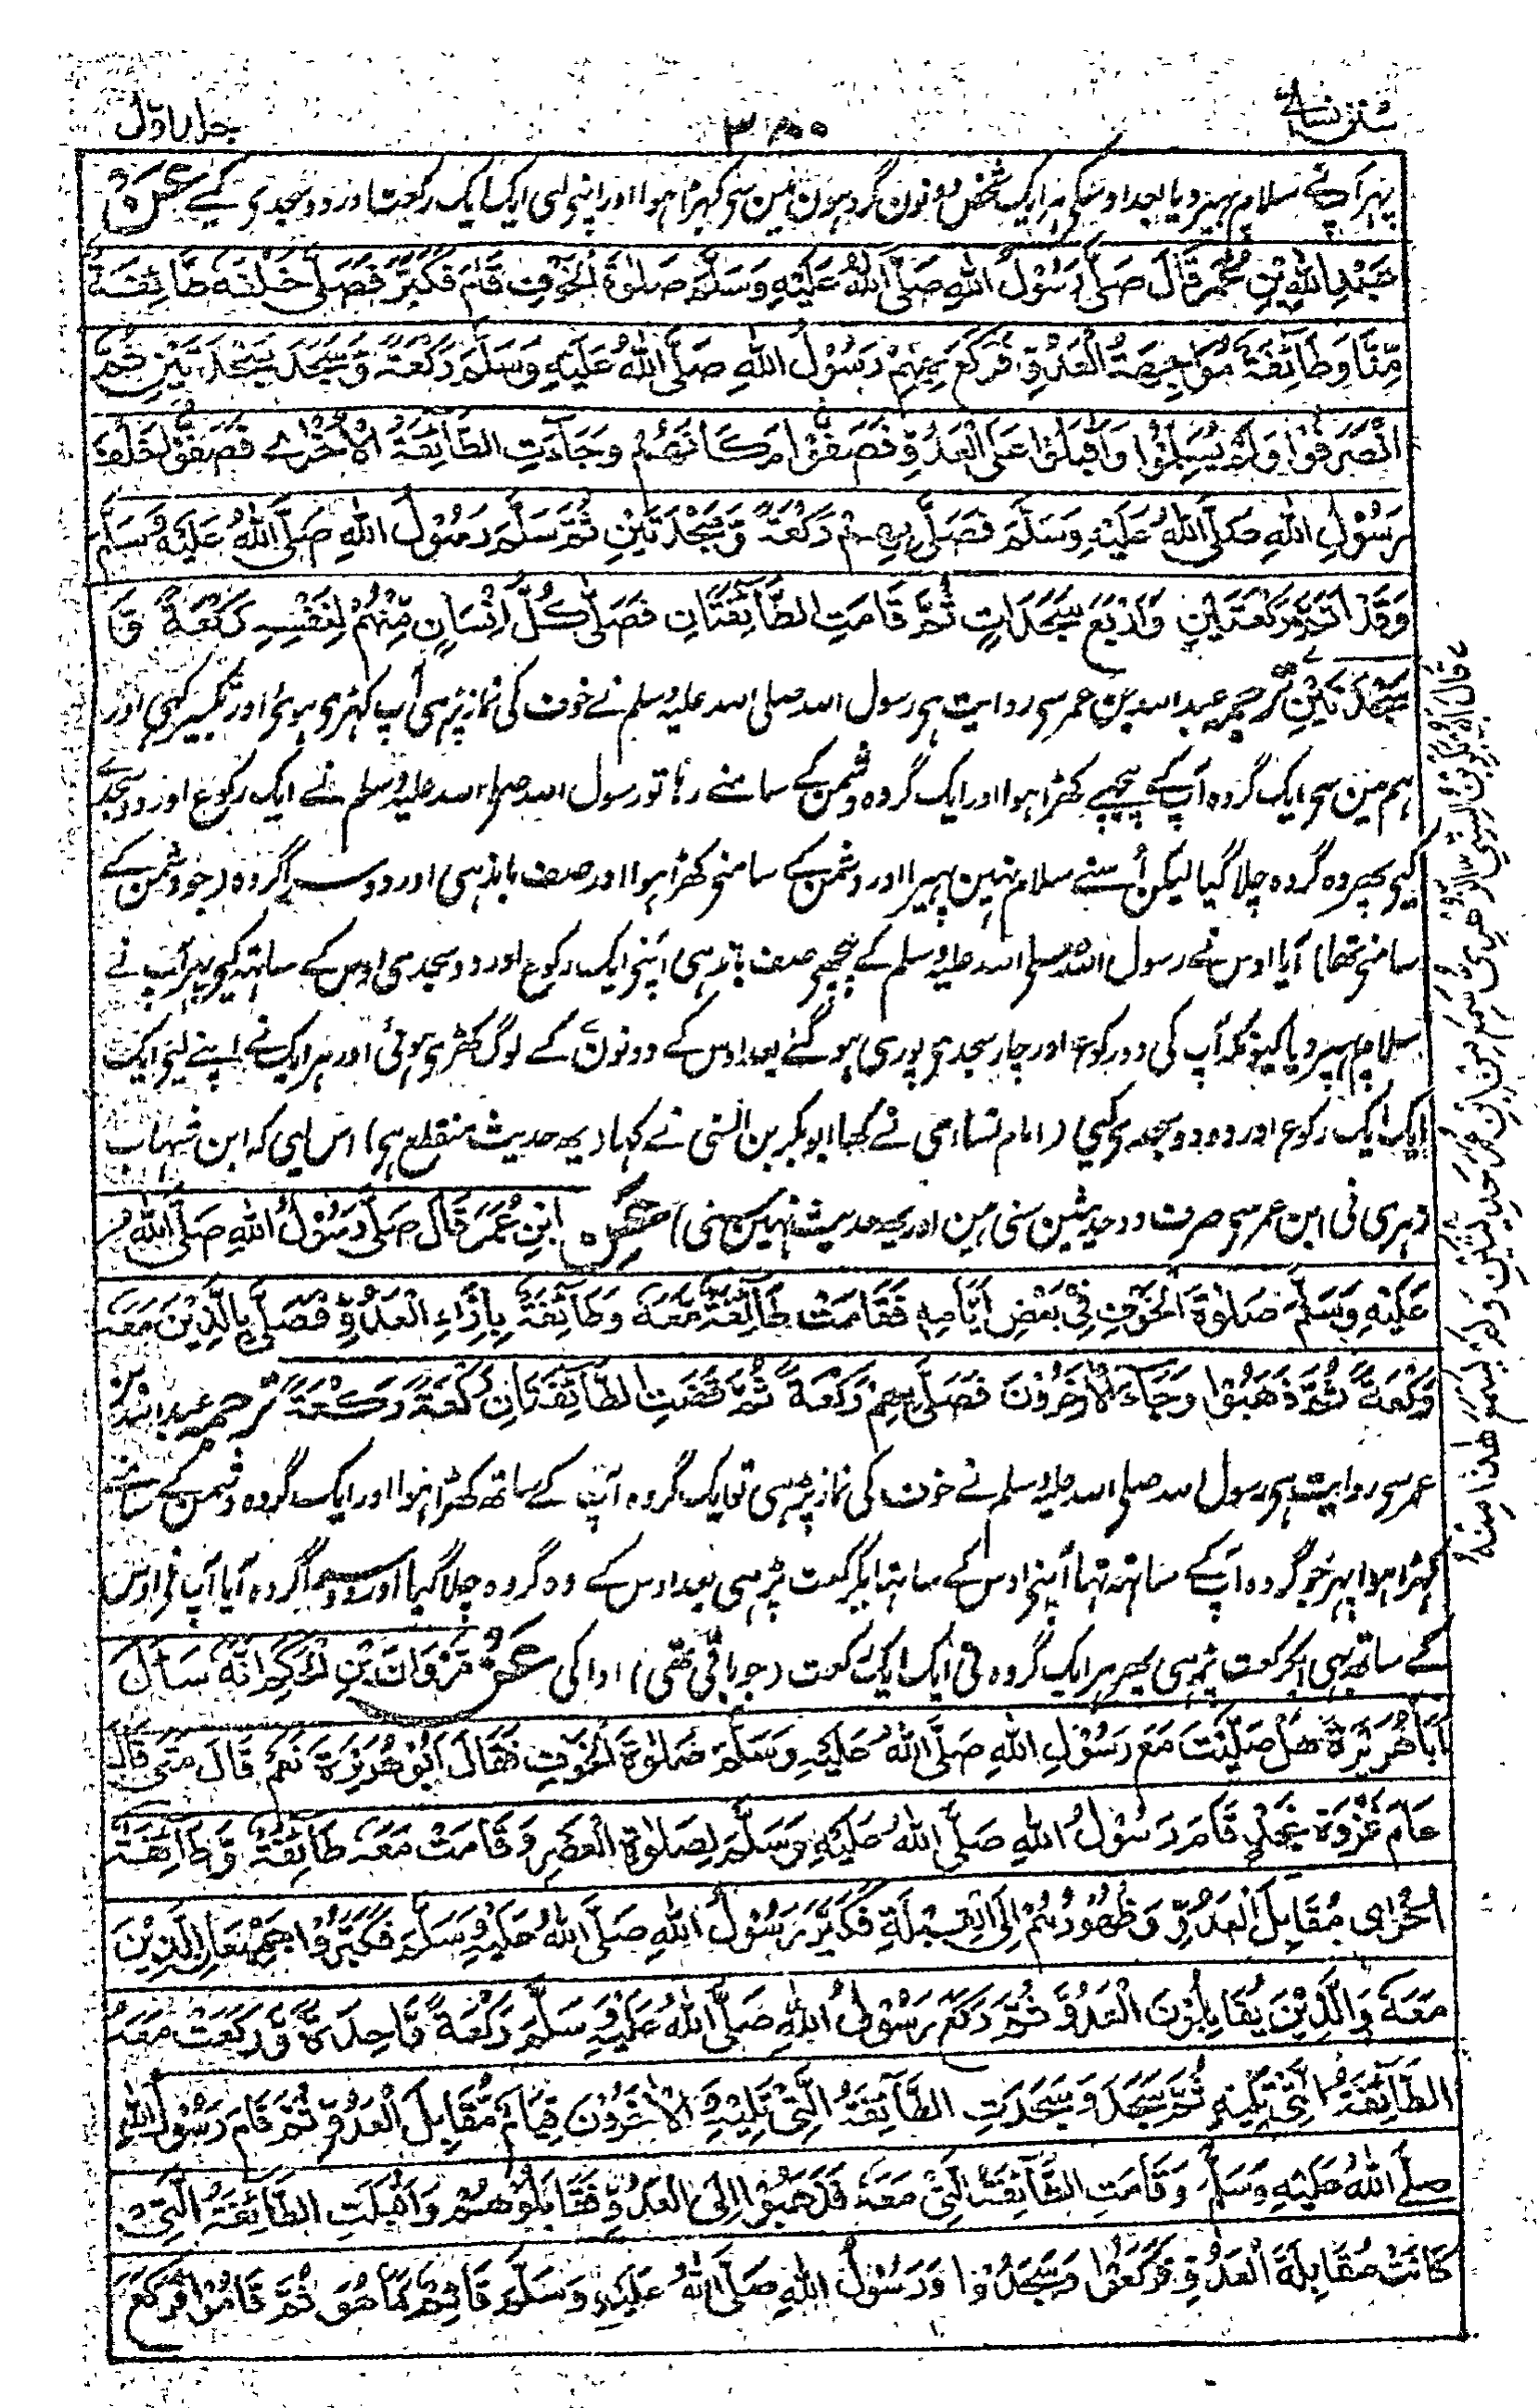 سنن نسائی
جلد اول
پہر آپنے سلام پہیر دیا بعد اوسکی ہر ایک شخص دونون گروہون مین سی کہڑا ہوا اور اپنی لئی ایک ایک رکعت اور دو سجدی کیے عَنْ
عَبْدِ اللّٰهِ بْنِ عُمَرَ قَالَ صَلَّى رَسُوْلُ اللّٰهِ صَلَّى اللّٰهُ عَلَيْهِ وَسَلَّمَ صَلٰوةَ الْخَوْفِ قَامَ فَكَبَّرَ فَصَلّٰى خَلْفَهُ طَآئِفَةٌ
مِّنَّا وَطَآئِفَةٌ مُوَاجِهَةُ الْعَدُوِّ فَرَكَعَ بِهِمْ رَسُوْلُ اللّٰهِ صَلَّى اللّٰهُ عَلَيْهِ وَسَلَّمَ رَكْعَةً وَّسَجَدَ سَجْدَتَيْنِ ثُمَّ
انْصَرَفُوْا وَلَمْ يُسَلِّمُوْا وَاَقْبَلُوْا عَلَى الْعَدُوِّ فَصَفُّوْا مَكَانَهُمْ وَجَآءَتِ الطَّآئِفَةُ الْاُخْرٰى فَصَفُّوْا خَلْفَ
رَسُوْلِ اللّٰهِ صَلَّى اللّٰهُ عَلَيْهِ وَسَلَّمَ فَصَلّٰى بِهِمْ رَكْعَةً وَّسَجْدَتَيْنِ ثُمَّ سَلَّمَ رَسُوْلُ اللّٰهِ صَلَّى اللّٰهُ عَلَيْهِ وَسَلَّمَ
وَقَدْ اَتَمَّ رَكْعَتَيْنِ وَاَرْبَعَ سَجَدَاتٍ ثُمَّ قَامَتِ الطَّآئِفَتَانِ فَصَلّٰى كُلُّ اِنْسَانٍ مِّنْهُمْ لِنَفْسِهِ رَكْعَةً وَّ
سَجْدَتَيْنِ ترجمہ عبد اللہ بن عمر سی روایت ہی رسول اللہ صلی اللہ علیہ وسلم نے خوف کی نماز پڑہی آپ کہڑی ہوئی اور تکبیر کہی اور
ہم مین سی ایک گروہ آپ کے پیچہے کھڑا ہوا اور ایک گروہ دشمن کے سامنے رہا تو رسول اللہ صلی اللہ علیہ وسلم نے ایک رکوع اور دو سجدے
کیے پھر وہ گروہ چلا گیا لیکن اُسنے سلام نہین پہیرا اور دشمن کے سامنی کھڑا ہوا اور صف باندہی اور دوسرا گروہ (جو دشمن کے
سامنی تھا) آیا اوس نے رسول اللہ صلی اللہ علیہ وسلم کے پیچہی صف باندہی آپنی ایک رکوع اور دو سجدی اوس کے ساتہہ کیے پہر آپ نے
سلام پہیر دیا کیونکہ آپ کی دو رکوع اور چار سجدی پوری ہو گئے بعد اوس کے دونون کے لوگ کھڑی ہوئی اور ہر ایک نے اپنے لئی ایک
ایک ایک رکوع اور دو دو سجدی کیے (امام نسائی نے کہا ابوبکر بن السنی نے کہا یہ حدیث منقطع ہی) اس لیی کہ ابن شہاب
زہری نی ابن عمر سی صرف دو حدیثین سنی ہین اور یہ حدیث نہین سنی) عَنِ ابْنِ عُمَرَ قَالَ صَلّٰى رَسُوْلُ اللّٰهِ صَلَّى اللّٰهُ
عَلَيْهِ وَسَلَّمَ صَلٰوةَ الْخَوْفِ فِىْ بَعْضِ اَيَّامِهِ فَقَامَتْ طَآئِفَةٌ مَعَهُ وَطَآئِفَةٌ بِاِزَاءِ الْعَدُوِّ فَصَلّٰى بِالَّذِيْنَ مَعَهُ
رَكْعَةً ثُمَّ ذَهَبُوْا وَجَآءَ الْاٰخَرُوْنَ فَصَلّٰى بِهِمْ رَكْعَةً ثُمَّ قَضَتِ الطَّآئِفَتَانِ رَكْعَةً رَكْعَةً ترجمہ عبد اللہ بن
عمر سی روایت ہی رسول اللہ صلی اللہ علیہ وسلم نے خوف کی نماز پڑہی تو ایک گروہ آپ کے ساتھ کھڑا ہوا اور ایک گروہ دشمن کے سامنے
کہڑا ہوا پہر جو گروہ آپ کے ساتہہ تہا آپنی اوس کے ساتہہ ایک رکعت پڑہی بعد اوس کے وہ گروہ چلا گیا اور دوسرا گروہ آیا آپ نی اوس
کے ساتھ بہی ایک رکعت پڑہی پھر ہر ایک گروہ نی ایک ایک رکعت (جو باقی تھی) ادا کی عَنْ مَرْوَانَ بْنِ الْحَكَمِ اَنَّهُ سَاَلَ
اَبَا هُرَيْرَةَ هَلْ صَلَّيْتَ مَعَ رَسُوْلِ اللّٰهِ صَلَّى اللّٰهُ عَلَيْهِ وَسَلَّمَ صَلٰوةَ الْخَوْفِ فَقَالَ اَبُوْ هُرَيْرَةَ نَعَمْ قَالَ مَتٰى قَالَ
عَامَ غَزْوَةِ نَجْدٍ قَامَ رَسُوْلُ اللّٰهِ صَلَّى اللّٰهُ عَلَيْهِ وَسَلَّمَ لِصَلٰوةِ الْعَصْرِ وَقَامَتْ مَعَهُ طَآئِفَةٌ وَّطَآئِفَةٌ
اُخْرٰى مُقَابِلَ الْعَدُوِّ وَظُهُوْرُهُمْ اِلَى الْقِبْلَةِ فَكَبَّرَ رَسُوْلُ اللّٰهِ صَلَّى اللّٰهُ عَلَيْهِ وَسَلَّمَ فَكَبَّرُوْا جَمِيْعًا الَّذِيْنَ
مَعَهُ وَالَّذِيْنَ يُقَابِلُوْنَ الْعَدُوَّ ثُمَّ رَكَعَ رَسُوْلُ اللّٰهِ صَلَّى اللّٰهُ عَلَيْهِ وَسَلَّمَ رَكْعَةً وَّاحِدَةً وَّرَكَعَتْ مَعَهُ
الطَّآئِفَةُ الَّتِىْ تَلِيْهِ ثُمَّ سَجَدَ وَسَجَدَتِ الطَّآئِفَةُ الَّتِىْ تَلِيْهِ وَالْاٰخَرُوْنَ قِيَامٌ مُّقَابِلَ الْعَدُوِّ ثُمَّ قَامَ رَسُوْلُ اللّٰهِ
صَلَّى اللّٰهُ عَلَيْهِ وَسَلَّمَ وَقَامَتِ الطَّآئِفَةُ الَّتِىْ مَعَهُ فَذَهَبُوْا اِلَى الْعَدُوِّ فَقَابَلُوْهُمْ وَاَقْبَلَتِ الطَّآئِفَةُ الَّتِىْ
كَانَتْ مُقَابِلَةَ الْعَدُوِّ فَرَكَعُوْا وَسَجَدُوْا وَرَسُوْلُ اللّٰهِ صَلَّى اللّٰهُ عَلَيْهِ وَسَلَّمَ قَائِمٌ كَمَا هُوَ ثُمَّ قَامُوْا فَرَكَعَ
قال ابوبكر بن السني الزهري سمع من ابن عمر حديثين ولم يسمع هذا منه